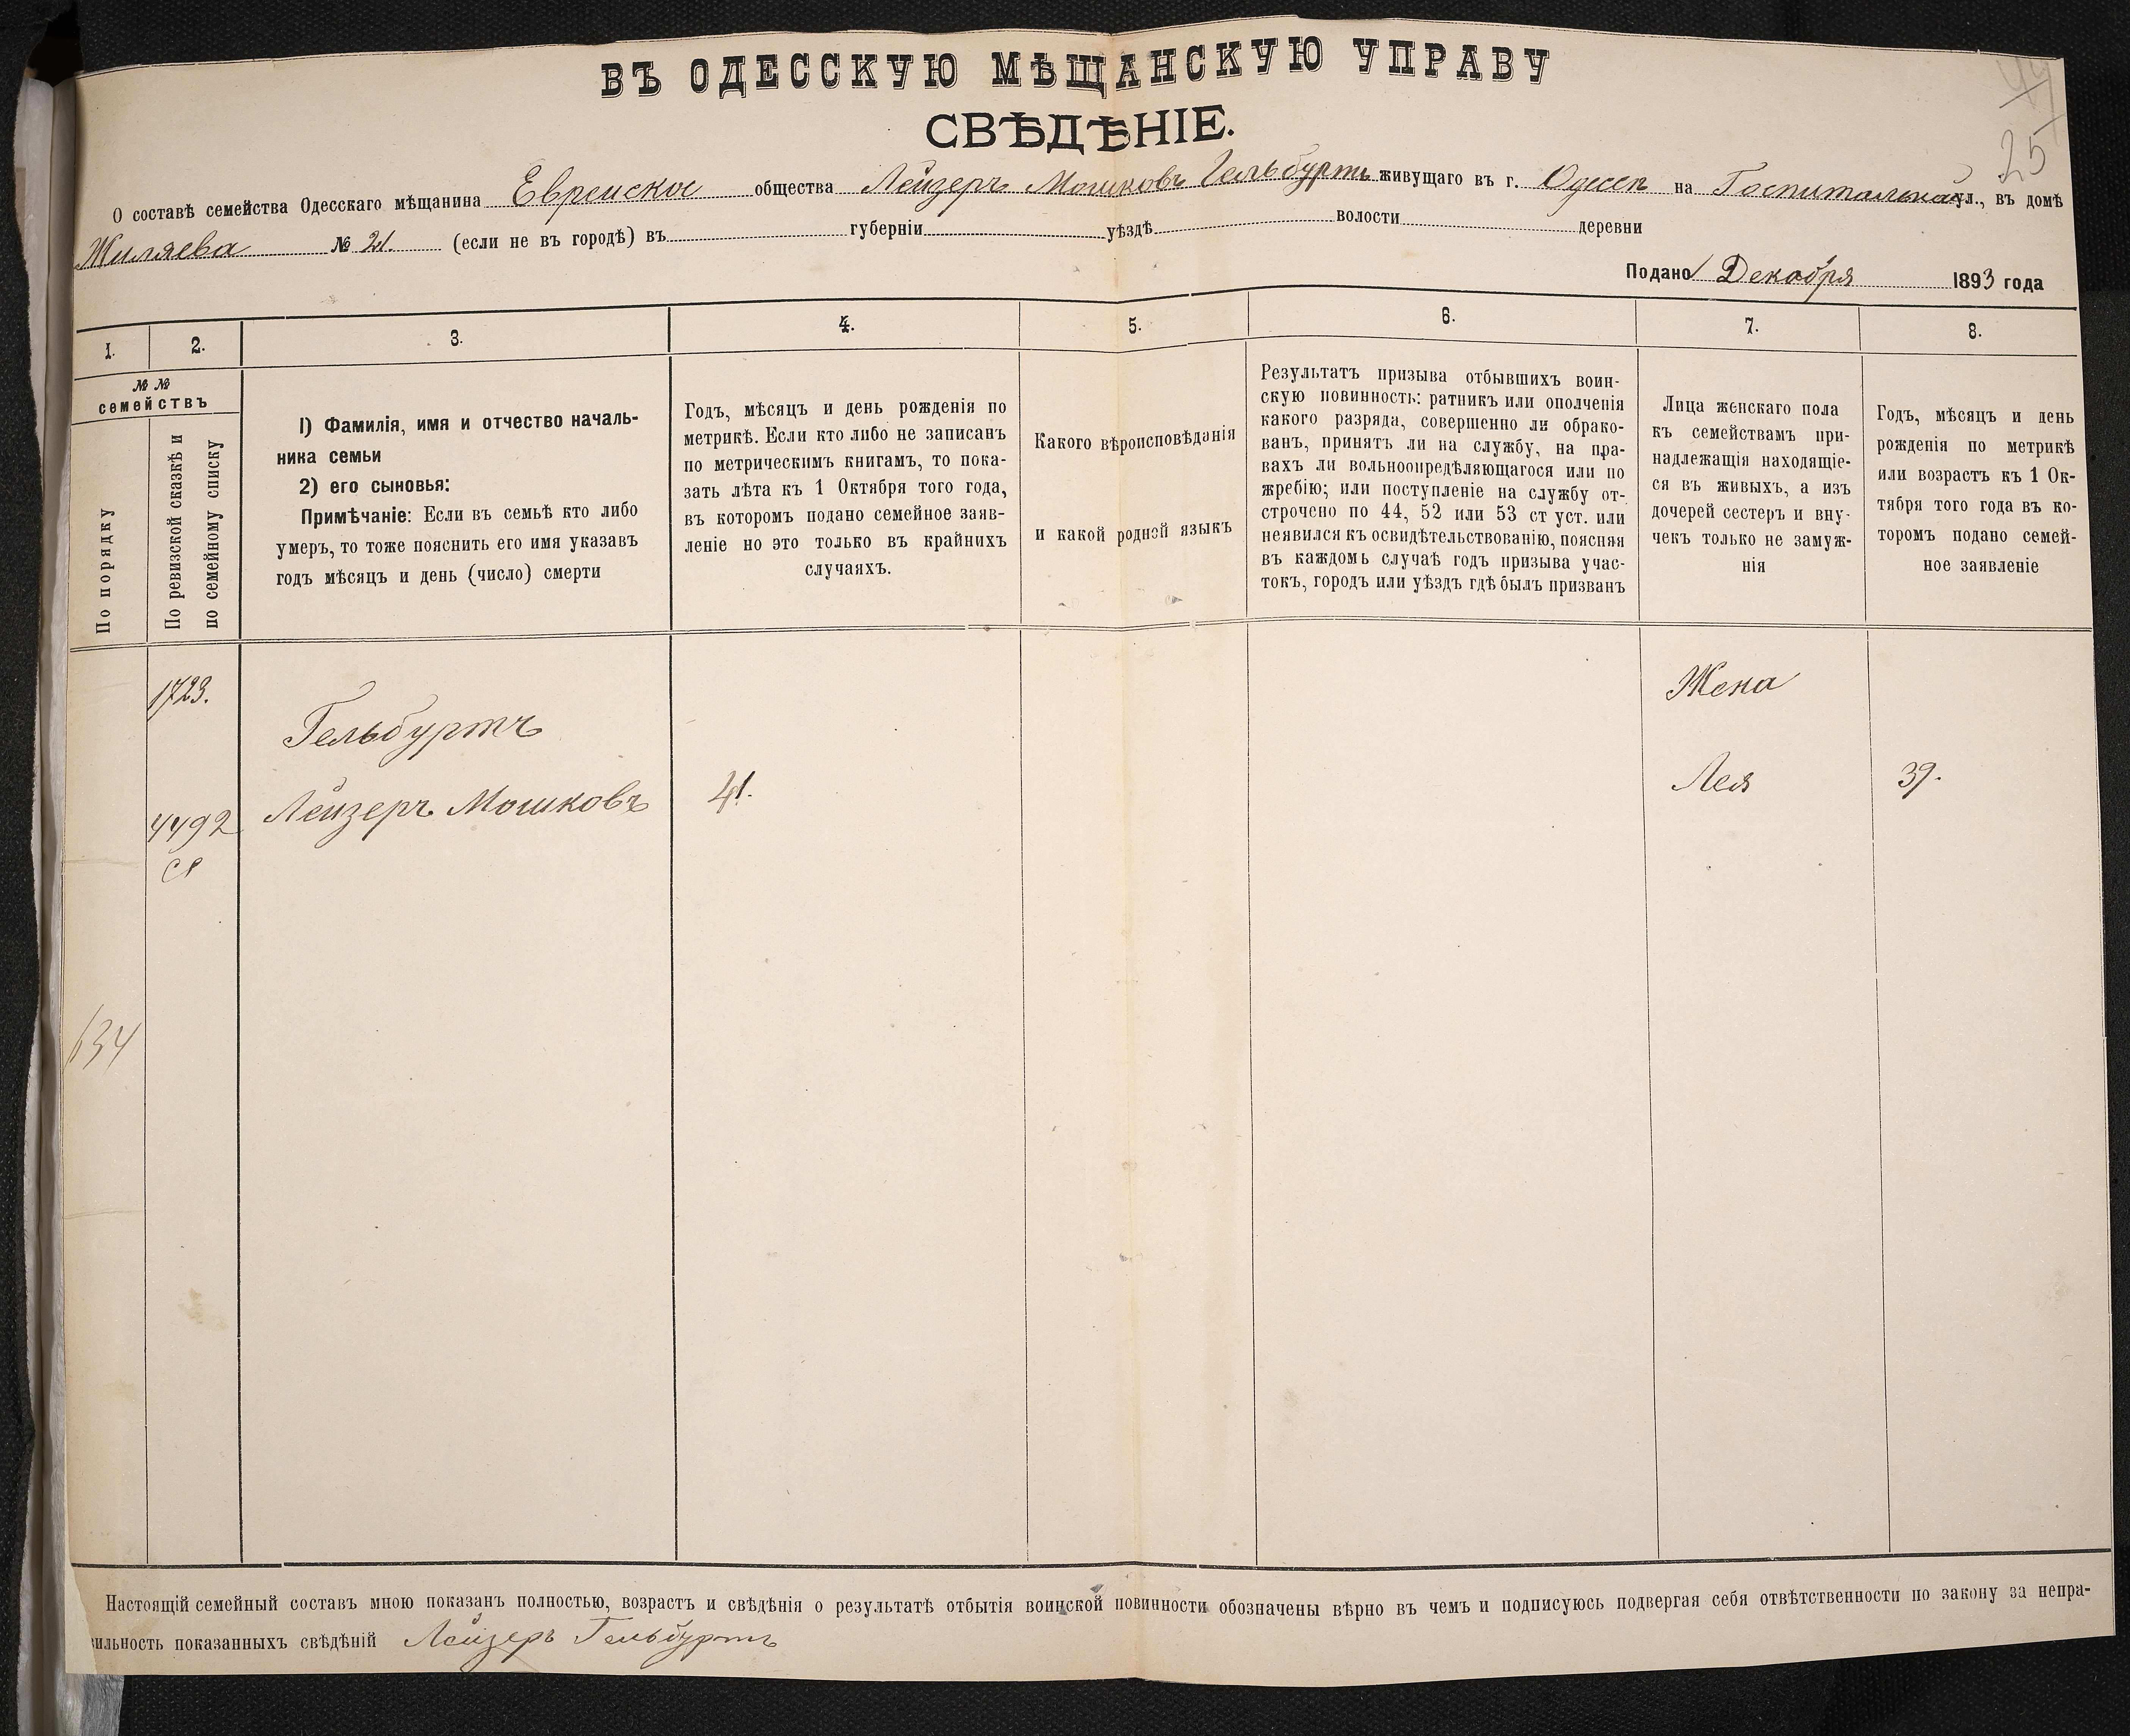 ВЪ ОДЕССКУЮ МѢЩАНСКУЮ УПРАВУ
СВѢДѢНІЕ.
25
О составѣ семейства Одесскаго мѣщанина Еврейское общества Лейзеръ Мошковъ Гельбуртъ живущаго въ г. Одессѣ на Госпитальной ул., въ домѣ
Жиляева № 21. (если не въ городѣ) въ губерніи уѣздѣ волости деревни
Подано 1 Декабря 1893 года
1. 2. 3. 4. 5. 6. 7. 8.
№ №
семействъ
По порядку
По ревизской сказкѣ и
по семейному списку
1) Фамилія, имя и отчество началь-
ника семьи
2) его сыновья:
Примѣчаніе: Если въ семьѣ кто либо
умеръ, то тоже пояснить его имя указавъ
годъ мѣсяцъ и день (число) смерти
Годъ, мѣсяцъ и день рожденія по
метрикѣ. Если кто либо не записанъ
по метрическимъ книгамъ, то пока-
зать лѣта къ 1 Октября того года,
въ которомъ подано семейное заяв-
леніе но это только въ крайнихъ
случаяхъ.
Какого вѣроисповѣданія
и какой родной языкъ
Результатъ призыва отбывшихъ воин-
скую повинность: ратникъ или ополченія
какого разряда, совершенно ли обрако-
ванъ, принятъ ли на службу, на пра-
вахъ ли вольноопредѣляющагося или по
жребію; или поступленіе на службу от-
строчено по 44, 52 или 53 ст уст. или
неявился къ освидѣтельствованію, поясняя
въ каждомъ случаѣ годъ призыва учас-
токъ, городъ или уѣздъ гдѣ былъ призванъ
Лица женскаго пола
къ семействамъ при-
надлежащія находящіе-
ся въ живыхъ, а изъ
дочерей сестеръ и вну-
чекъ только не замуж-
нія
Годъ, мѣсяцъ и день
рожденія по метрикѣ
или возрастъ къ 1 Ок-
тября того года въ ко-
торомъ подано семей-
ное заявленіе
1723.
Жена
Гельбуртъ
Лейзеръ Мошковъ 41.
Лея 39.
4492
634
Настоящій семейный составъ мною показанъ полностью, возрастъ и свѣдѣнія о результатѣ отбытія воинской повинности обозначены вѣрно въ чемъ и подписуюсь подвергая себя отвѣтственности по закону за непра-
вильность показанныхъ свѣдѣній Лейзеръ Гельбуртъ